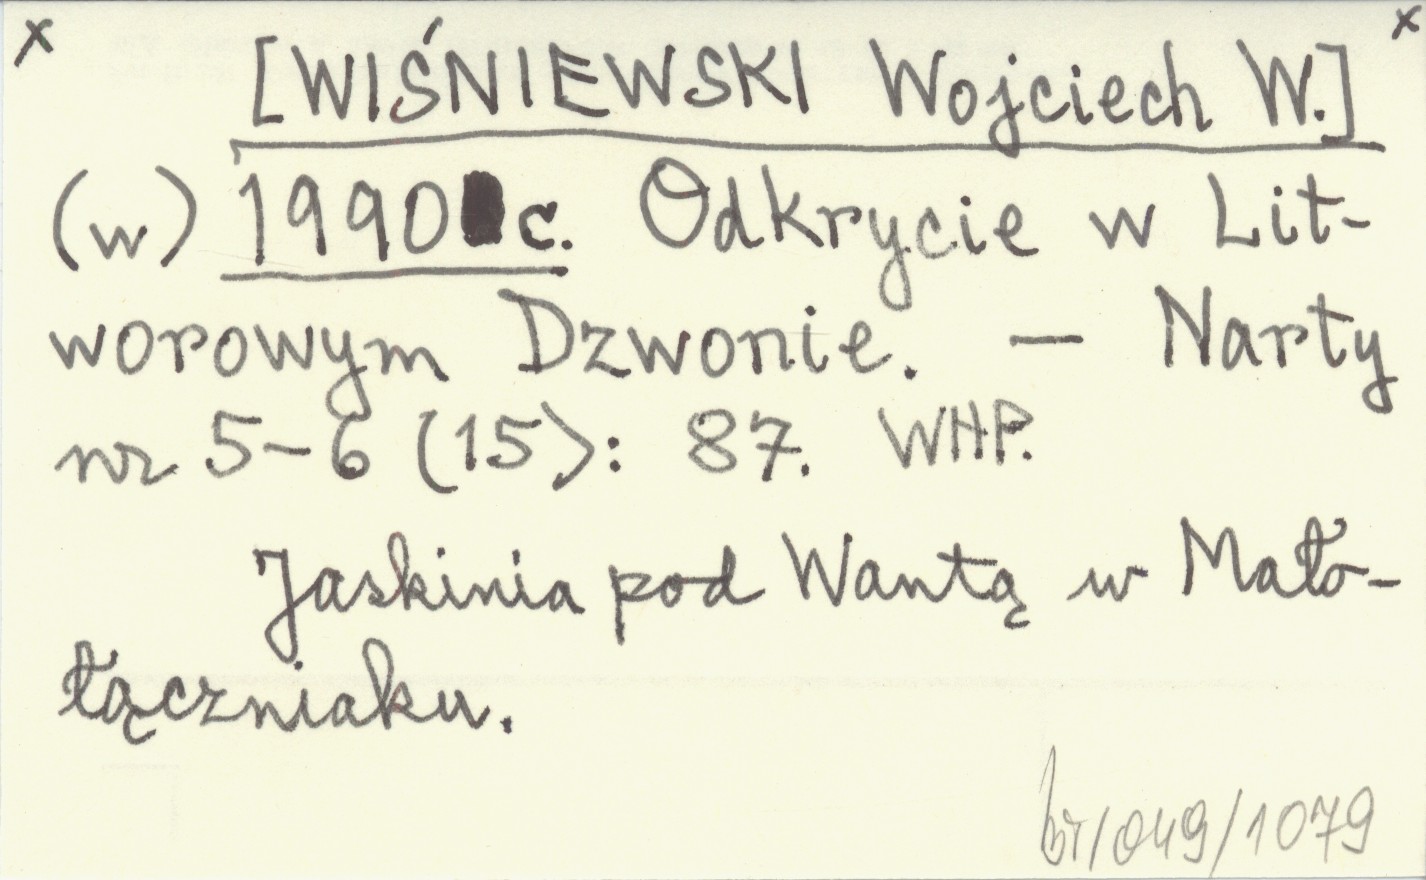 x x
[WIŚNIEWSKI Wojciech W.]
(w) 1990 c. Odkrycie w Lit-
worowym Dzwonie. — Narty
nr 5-6 (15): 87. WHP.
Jaskinia pod Wantą w Mało-
łączniaku.
/049/1079